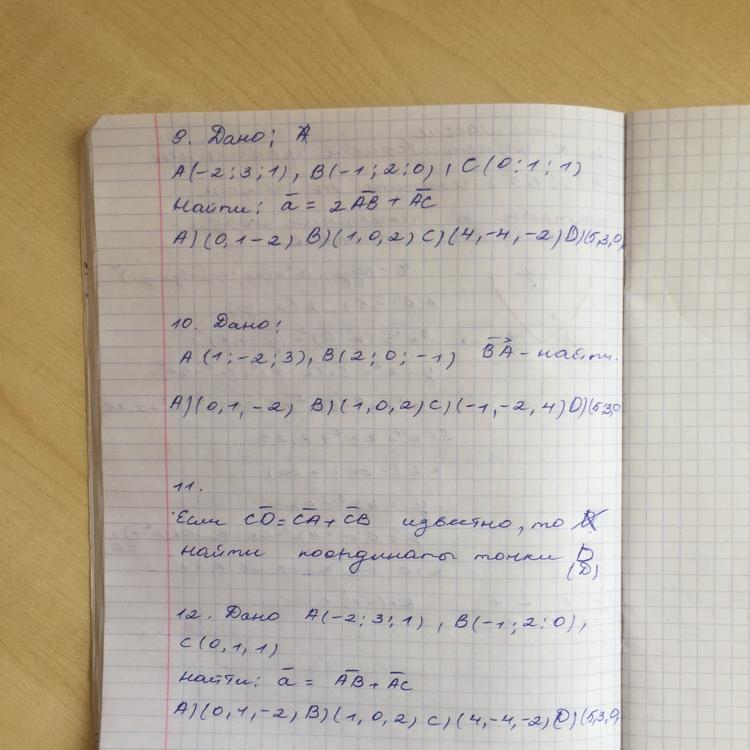 9. Дано;
A(-2;3;1), B(-1;2;0), C(0;1;1)
Найти: a = 2AB + AC
A)(0,1-2) B)(1,0,2) C)(4,-4,-2) D)(5,3,0,
10. Дано;
A(1;-2;3), B(2;0;-1) BA - найти.
A)(0,1,-2) B)(1,0,2) C)(-1,-2,4) D)(5,3,0
11.
Если CD = CA + CB известно, то
найти координаты точки D
(D)
12. Дано A(-2;3;1), B(-1;2;0),
C(0,1,1)
найти: a = AB + AC
A)(0,1,-2) B)(1,0,2) C)(4,-4,-2) D)(5,3,0,